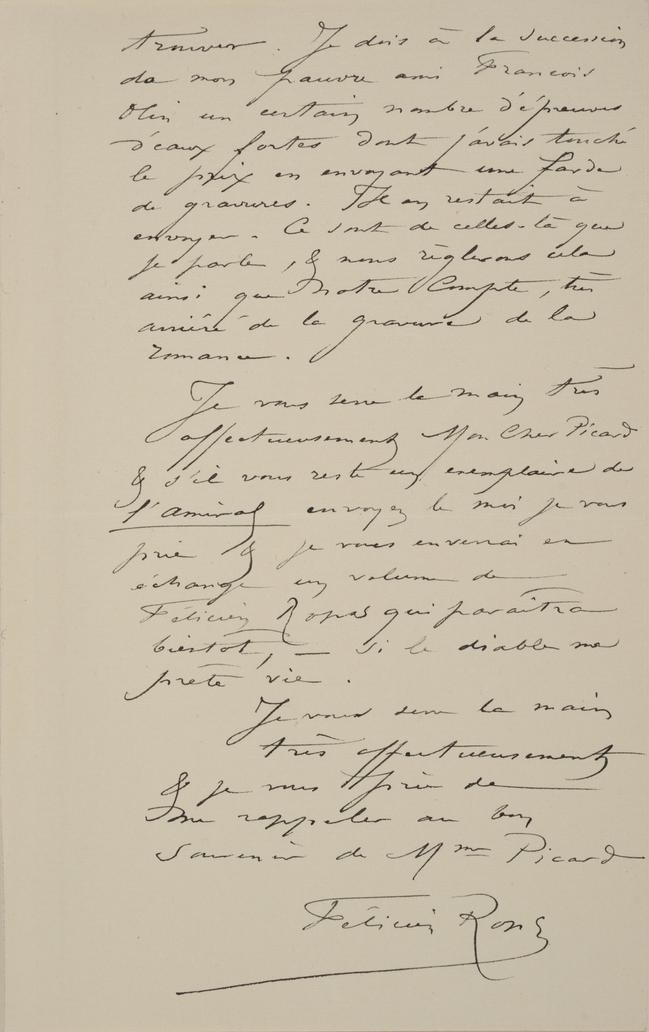 trouver. Je dois à la succession
de mon pauvre ami François
Olin un certain nombre d'épreuves
d'eaux fortes dont j'avais touché
le prix en envoyant une farde
de gravures. Il en restait à
envoyer. Ce sont de celles-là que
je parle, & nous règlerons cela
ainsi que Notre Compte, très
arriéré de la gravure de la
romance.
Je vous serre la main très
affectueusement Mon Cher Picard
& s'il vous reste un exemplaire de
l'Amiral envoyez le moi je vous
prie & je vous enverrai en
échange un volume de
Félicien Rops qui paraîtra
bientot, — si le diable me
prête vie.
Je vous serre la main
très affectueusement
& je vous prie de
me rappeler au bon
Souvenir de Mme Picard
Félicien Rops